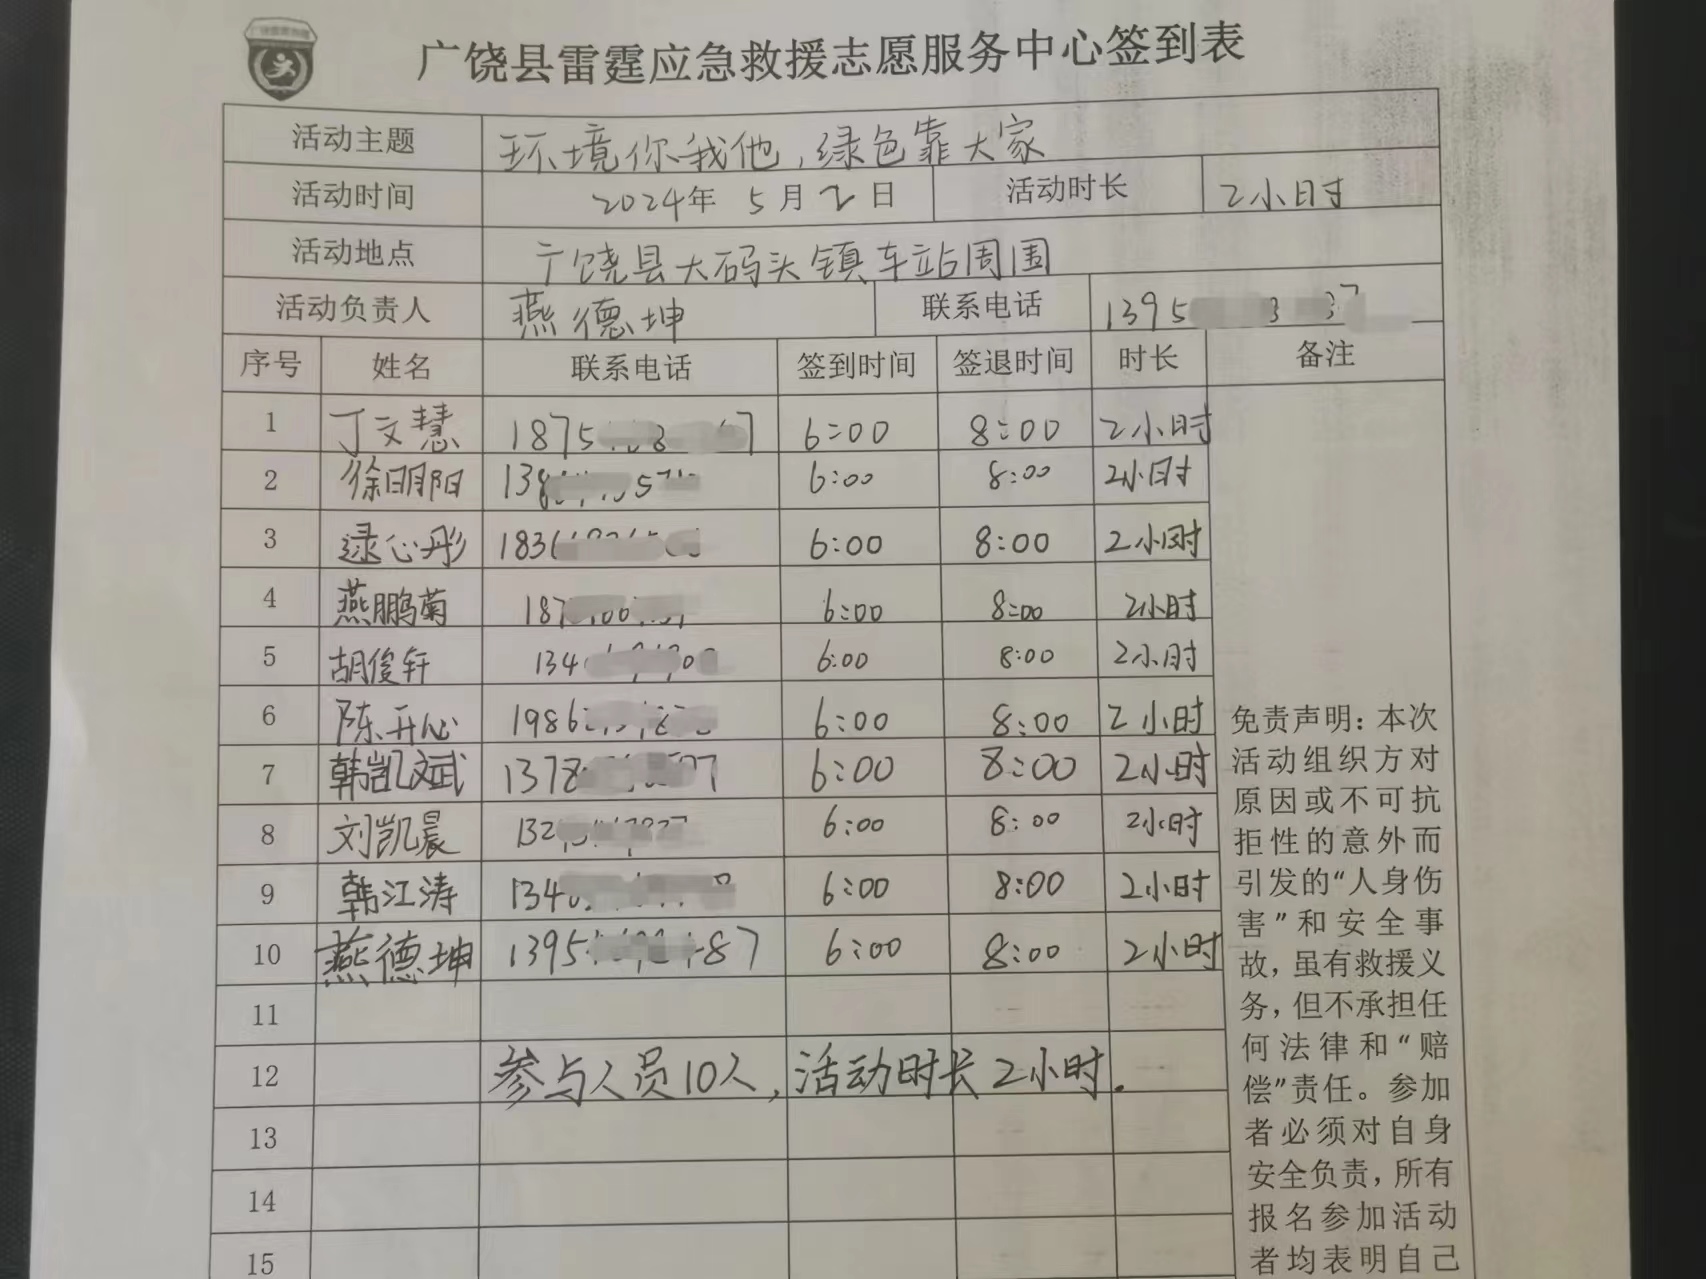 广饶县雷霆应急救援志愿服务中心签到表
活动主题 环境你我他,绿色靠大家
活动时间 2024年 5月2日 活动时长 2小时
活动地点 广饶县大码头镇车站周围
活动负责人 燕德坤 联系电话 1395
序号 姓名 联系电话 签到时间 签退时间 时长 备注
1 丁文慧 1875 6:00 8:00 2小时
2 徐明阳 6:00 8:00 2小时
3 逯心彤 6:00 8:00 2小时
4 燕鹏菊 6:00 8:00 2小时
5 胡俊轩 6:00 8:00 2小时
6 陈开心 6:00 8:00 2小时
7 韩凯斌 6:00 8:00 2小时
8 刘凯晨 6:00 8:00 2小时
9 韩江涛 6:00 8:00 2小时
10 燕德坤 1395 87 6:00 8:00 2小时
11
12 参与人员10人,活动时长2小时.
13
14
15
免责声明:本次
活动组织方对
原因或不可抗
拒性的意外而
引发的“人身伤
害”和安全事
故,虽有救援义
务,但不承担任
何法律和“赔
偿”责任。参加
者必须对自身
安全负责,所有
报名参加活动
者均表明自己